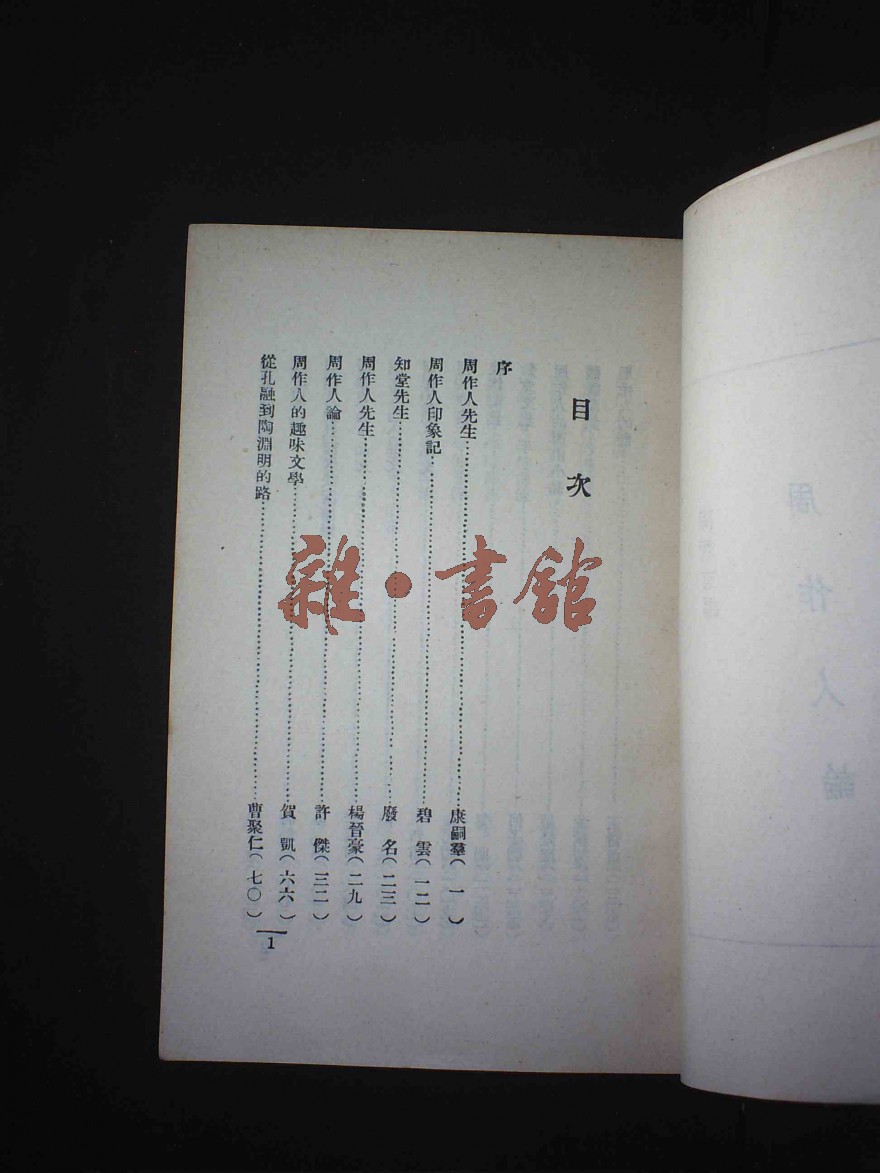 目次
序
周作人先生……康嗣羣(一)
周作人印象記……碧雲(一二)
知堂先生……廢名(二三)
周作人先生……楊晉豪(二九)
周作人論……許傑(三二)
周作人的趣味文學……賀凱(六六)
從孔融到陶淵明的路……曹聚仁(七〇)
1
雜・書館
周作人論